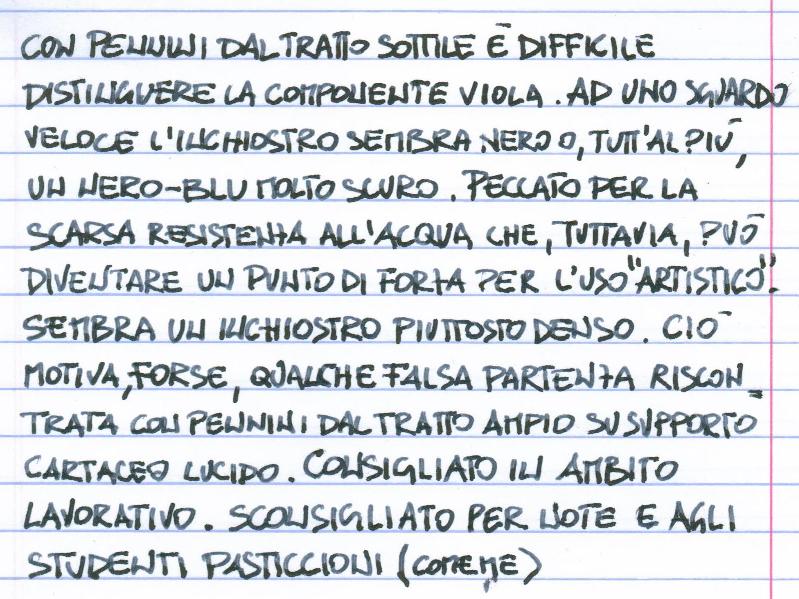 CON PENNINI DAL TRATTO SOTTILE È DIFFICILE
DISTINGUERE LA COMPONENTE VIOLA. AD UNO SGUARDO
VELOCE L'INCHIOSTRO SEMBRA NERO O, TUTT'AL PIÙ,
UN NERO-BLU MOLTO SCURO. PECCATO PER LA
SCARSA RESISTENZA ALL'ACQUA CHE, TUTTAVIA, PUÒ
DIVENTARE UN PUNTO DI FORZA PER L'USO "ARTISTICO".
SEMBRA UN INCHIOSTRO PIUTTOSTO DENSO. CIÒ
MOTIVA, FORSE, QUALCHE FALSA PARTENZA RISCON_
TRATA CON PENNINI DAL TRATTO AMPIO SU SUPPORTO
CARTACEO LUCIDO. CONSIGLIATO IN AMBITO
LAVORATIVO. SCONSIGLIATO PER NOTE E AGLI
STUDENTI PASTICCIONI (COME ME)